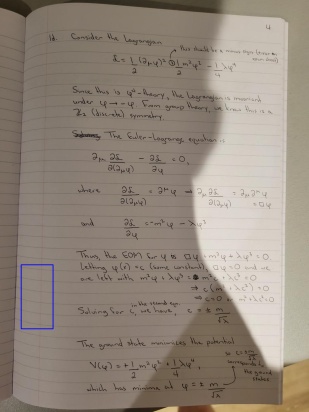 4
1d. Consider the Lagrangian
this should be a minus sign
L = 1/2 (∂μφ)² ⊕ 1/2 m²φ² - 1/4 λφ⁴
Since this is φ⁴-theory, the Lagrangian is invariant
under φ → -φ. From group theory, we know this is a
Z₂ (discrete) symmetry.
The Euler-Lagrange equation is
∂μ ∂L/∂(∂μφ) - ∂L/∂φ = 0,
where ∂L/∂(∂μφ) = ∂^μφ → ∂μ ∂L/∂(∂μφ) = ∂μ∂^μφ
= □φ
and ∂L/∂φ = -m²φ - λφ³
Thus, the EOM for φ is □φ + m²φ + λφ³ = 0
Letting φ(x) = c (some constant), □φ = 0 and we
are left with m²φ + λφ³ = m²c + λc³ = 0
⇒ c(m² + λc²) = 0
⇒ c = 0 or m² + λc² = 0
in the second eqn
Solving for c, we have, c = ± m/√λ
The ground state minimizes the potential
V(φ) = + 1/2 m²φ² + 1/4 λφ⁴,
so c = ± m/√λ
corresponds to
the ground
states
which has minima at φ = ± m/√λ